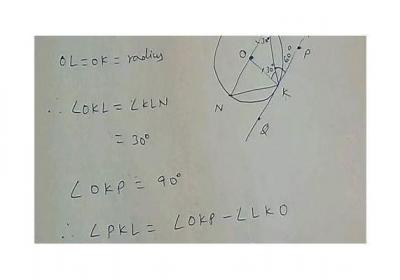 OL = OK = radius
∴ ∠OKL = ∠KLN
= 30°
∠OKP = 90°
∴ ∠PKL = ∠OKP - ∠LKO
30°
O
30°
60°
P
K
N
Q